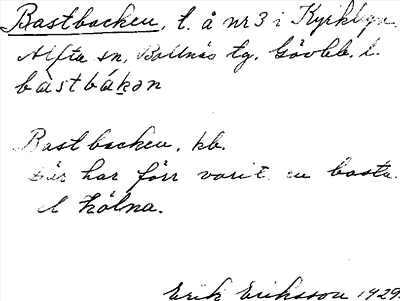 Bastbacken, t. å nr 3 i Kyrkbyn
Alfta sn, Bollnäs tg, Gävleb. l.
bàstbákən
Bastbacken, kb.
Där har förr varit en basta
el kölna.
Erik Eriksson 1929.